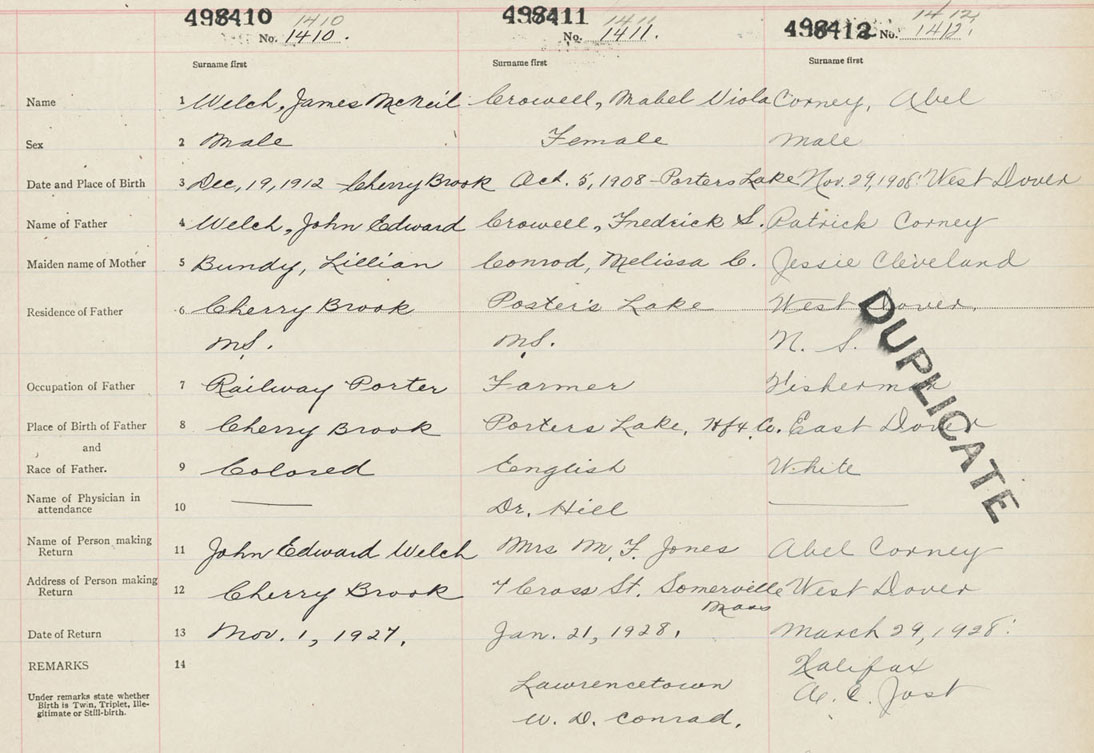 498410 1410 498411 1411 498412 1412
No. 1410. No. 1411. No. 1412.
Surname first Surname first Surname first
Name 1 Welch, James McNeil Crowell, Mabel Viola Corney, Abel
Sex 2 Male Female Male
Date and Place of Birth 3 Dec, 19, 1912 - Cherry Brook Oct. 5, 1908 - Porters Lake Nov. 29, West Dover
Name of Father 4 Welch, John Edward Crowell, Fredrick S. Patrick Corney
Maiden name of Mother 5 Bundy, Lillian Conrod, Melissa C. Jessie Cleveland
Residence of Father 6 Cherry Brook Porter's Lake West Dover.
N.S. N.S. N. S.
Occupation of Father 7 Railway Porter Farmer Fisherman
Place of Birth of Father 8 Cherry Brook Porters Lake, Hfx Co. East Dover
and
Race of Father. 9 Colored English White
Name of Physician in
attendance 10 Dr. Hill
Name of Person making
Return 11 John Edward Welch Mrs M. F. Jones Abel Corney
Address of Person making
Return 12 Cherry Brook 7 Cross St. Somerville West Dover
Mass
Date of Return 13 Nov. 1, 1927. Jan. 21, 1928. March 29, 1928.
REMARKS 14 Halifax
Lawrencetown A. C. Jost
Under remarks state whether
Birth is Twin, Triplet, Ille-
gitimate or Still-birth.
W. D. Conrad.
DUPLICATE